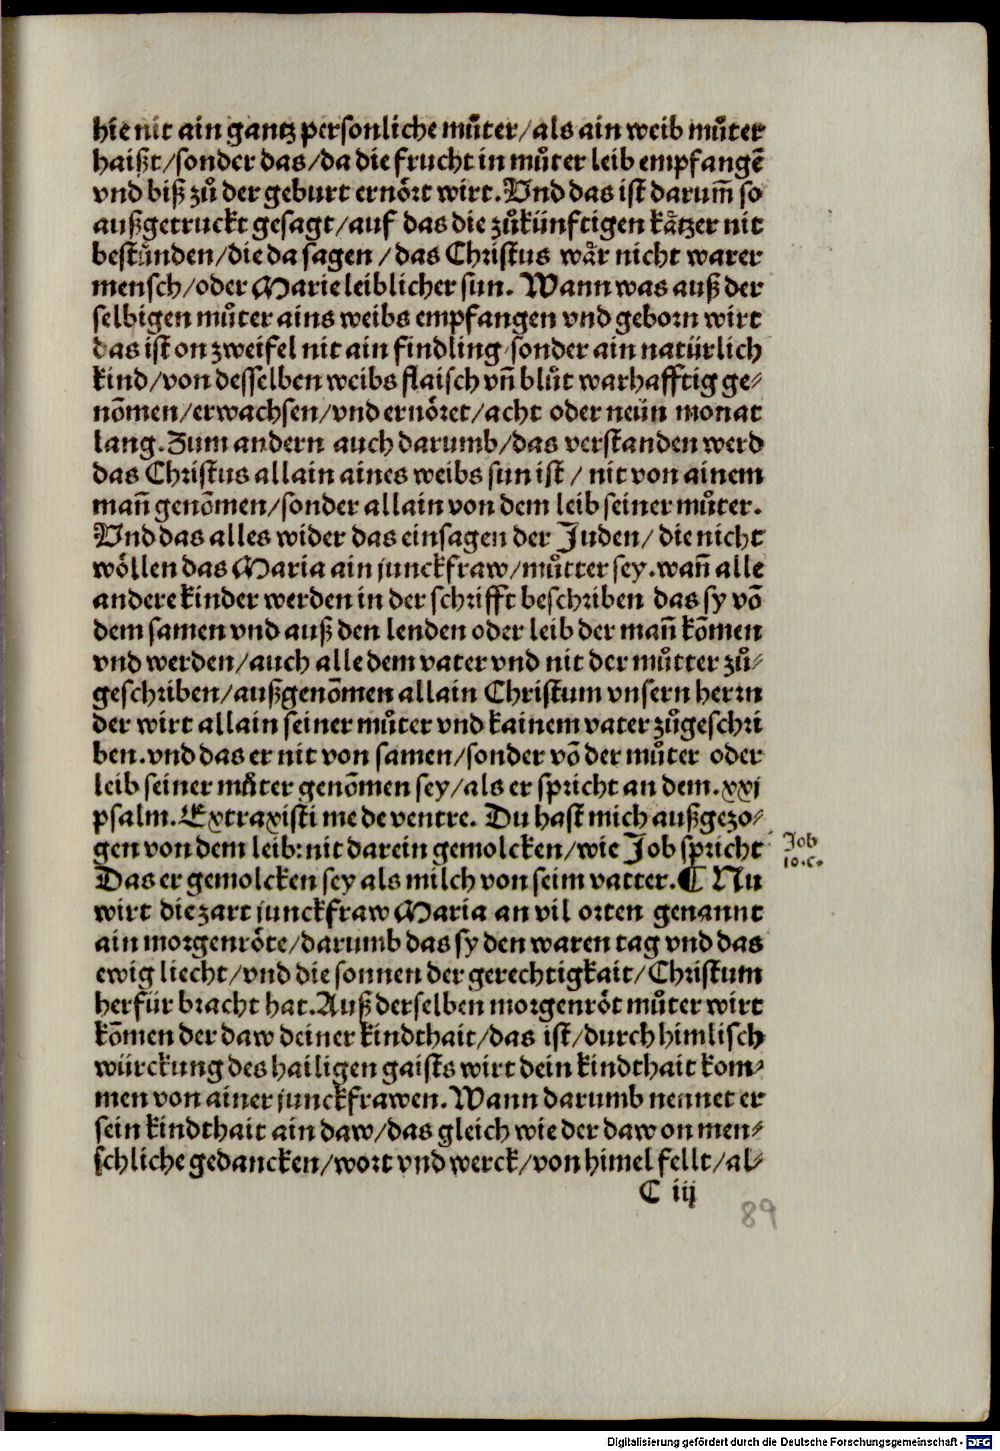 hie nit ain gantz personliche můter/als ain weib můter
haißt/sonder das/da die frucht in můter leib empfangẽ
vnd biß zů der geburt ernört wirt. Vnd das ist darum̃ so
außgetruckt gesagt/auf das die zůkünfftigen kätzer nit
bestünden/die da sagen/das Christus wär nicht warer
mensch/oder Marie leiblicher sun. Wann was auß der
selbigen můter ains weibs empfangen vnd geborn wirt
das ist on zweifel nit ain findling/sonder ain natürlich
kind/von desselben weibs flaisch vñ blůt warhafftig ge⸗
nõmen/erwachsen/vnd ernöret/acht oder neün monat
lang. Zum andern auch darumb/das verstanden werd
das Christus allain aines weibs sun ist/nit von ainem
mañ genõmen/sonder allain von dem leib seiner můter.
Vnd das alles wider das einsagen der Juden/die nicht
wöllen das Maria ain junckfraw/můtter sey. wañ alle
andere kinder werden in der schrifft beschriben das sy võ
dem samen vnd auß den lenden oder leib der mañ kõmen
vnd werden/auch alle dem vater vnd nit der můtter zů⸗
geschriben/außgenõmen allain Christum vnsern herrn
der wirt allain seiner můter vnd kainem vater zůgeschri
ben. vnd das er nit von samen/sonder võ der můter oder
leib seiner můter genõmen sey/als er spricht an dem. xxj
psalm. Extraxisti me de ventre. Du hast mich außgezo⸗
gen von dem leib: nit darein gemolcken/wie Job spricht
Job
10.c.
Das er gemolcken sey als milch von seim vatter. ¶ Nu
wirt die zart junckfraw Maria an vil orten genannt
ain morgenröte/darumb das sy den waren tag vnd das
ewig liecht/vnd die sonnen der gerechtigkait/Christum
herfür bracht hat. Auß derselben morgenröt můter wirt
kõmen der daw deiner kindthait/das ist/durch himlisch
würckung des hailigen gaists wirt dein kindthait kom⸗
men von ainer junckfrawen. Wann darumb nennet er
sein kindthait ain daw/das gleich wie der daw on men⸗
schliche gedancken/wort vnd werck/von himel fellt/al⸗
C iij
89
Digitalisierung gefördert durch die Deutsche Forschungsgemeinschaft - DFG